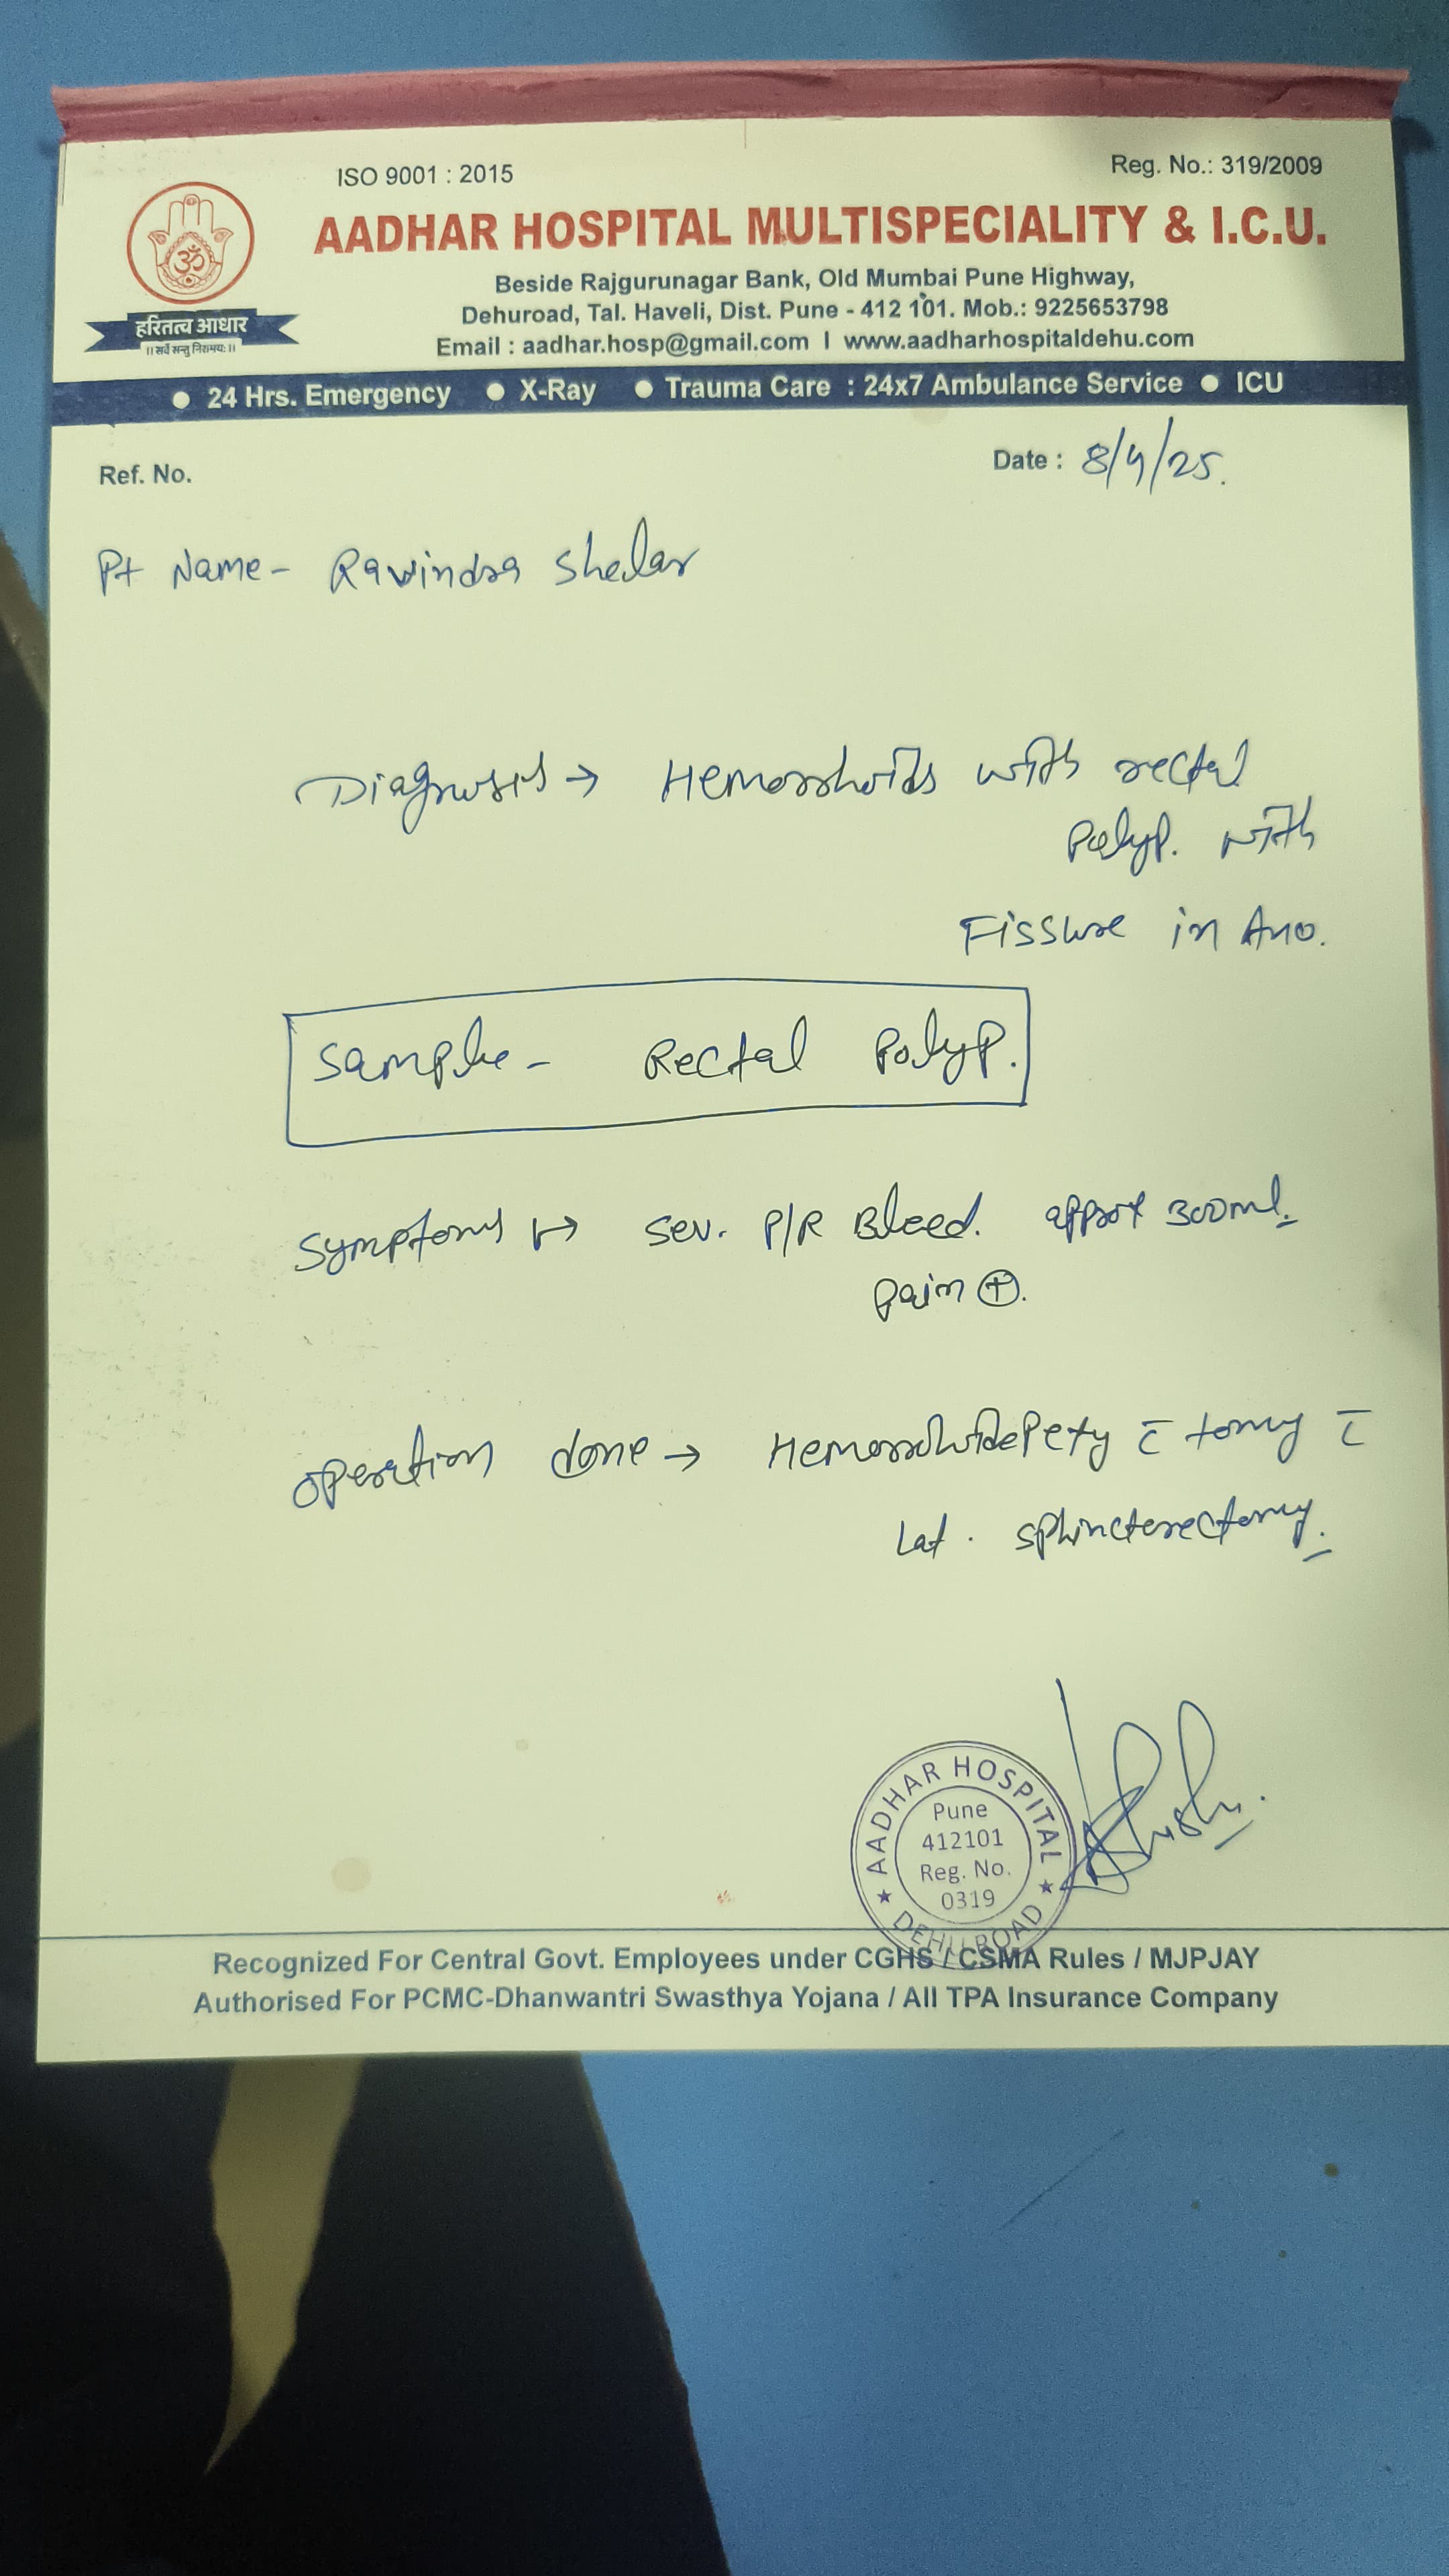 ISO 9001 : 2015
Reg. No.: 319/2009
AADHAR HOSPITAL MULTISPECIALITY & I.C.U.
Beside Rajgurunagar Bank, Old Mumbai Pune Highway,
Dehuroad, Tal. Haveli, Dist. Pune - 412 101. Mob.: 9225653798
Email : aadhar.hosp@gmail.com | www.aadharhospitaldehu.com
ॐ
हरितत्व आधार
।। सर्वे सन्तु निरामयः ।।
● 24 Hrs. Emergency ● X-Ray ● Trauma Care : 24x7 Ambulance Service ● ICU
Ref. No.
Date : 8/9/25.
Pt Name - Ravindra Shelar
Diagnosis → Hemorrhoids with rectal
Polyp. with
Fissure in Ano.
Sample - Rectal Polyp.
Symptoms → sev. P/R Bleed. approx 300ml.
pain ⊕.
operation done →
Lat. sphincterectomy.
AADHAR HOSPITAL
Pune
412101
Reg. No.
0319
★ DEHU ROAD ★
Recognized For Central Govt. Employees under CGHS / CSMA Rules / MJPJAY
Authorised For PCMC-Dhanwantri Swasthya Yojana / All TPA Insurance Company